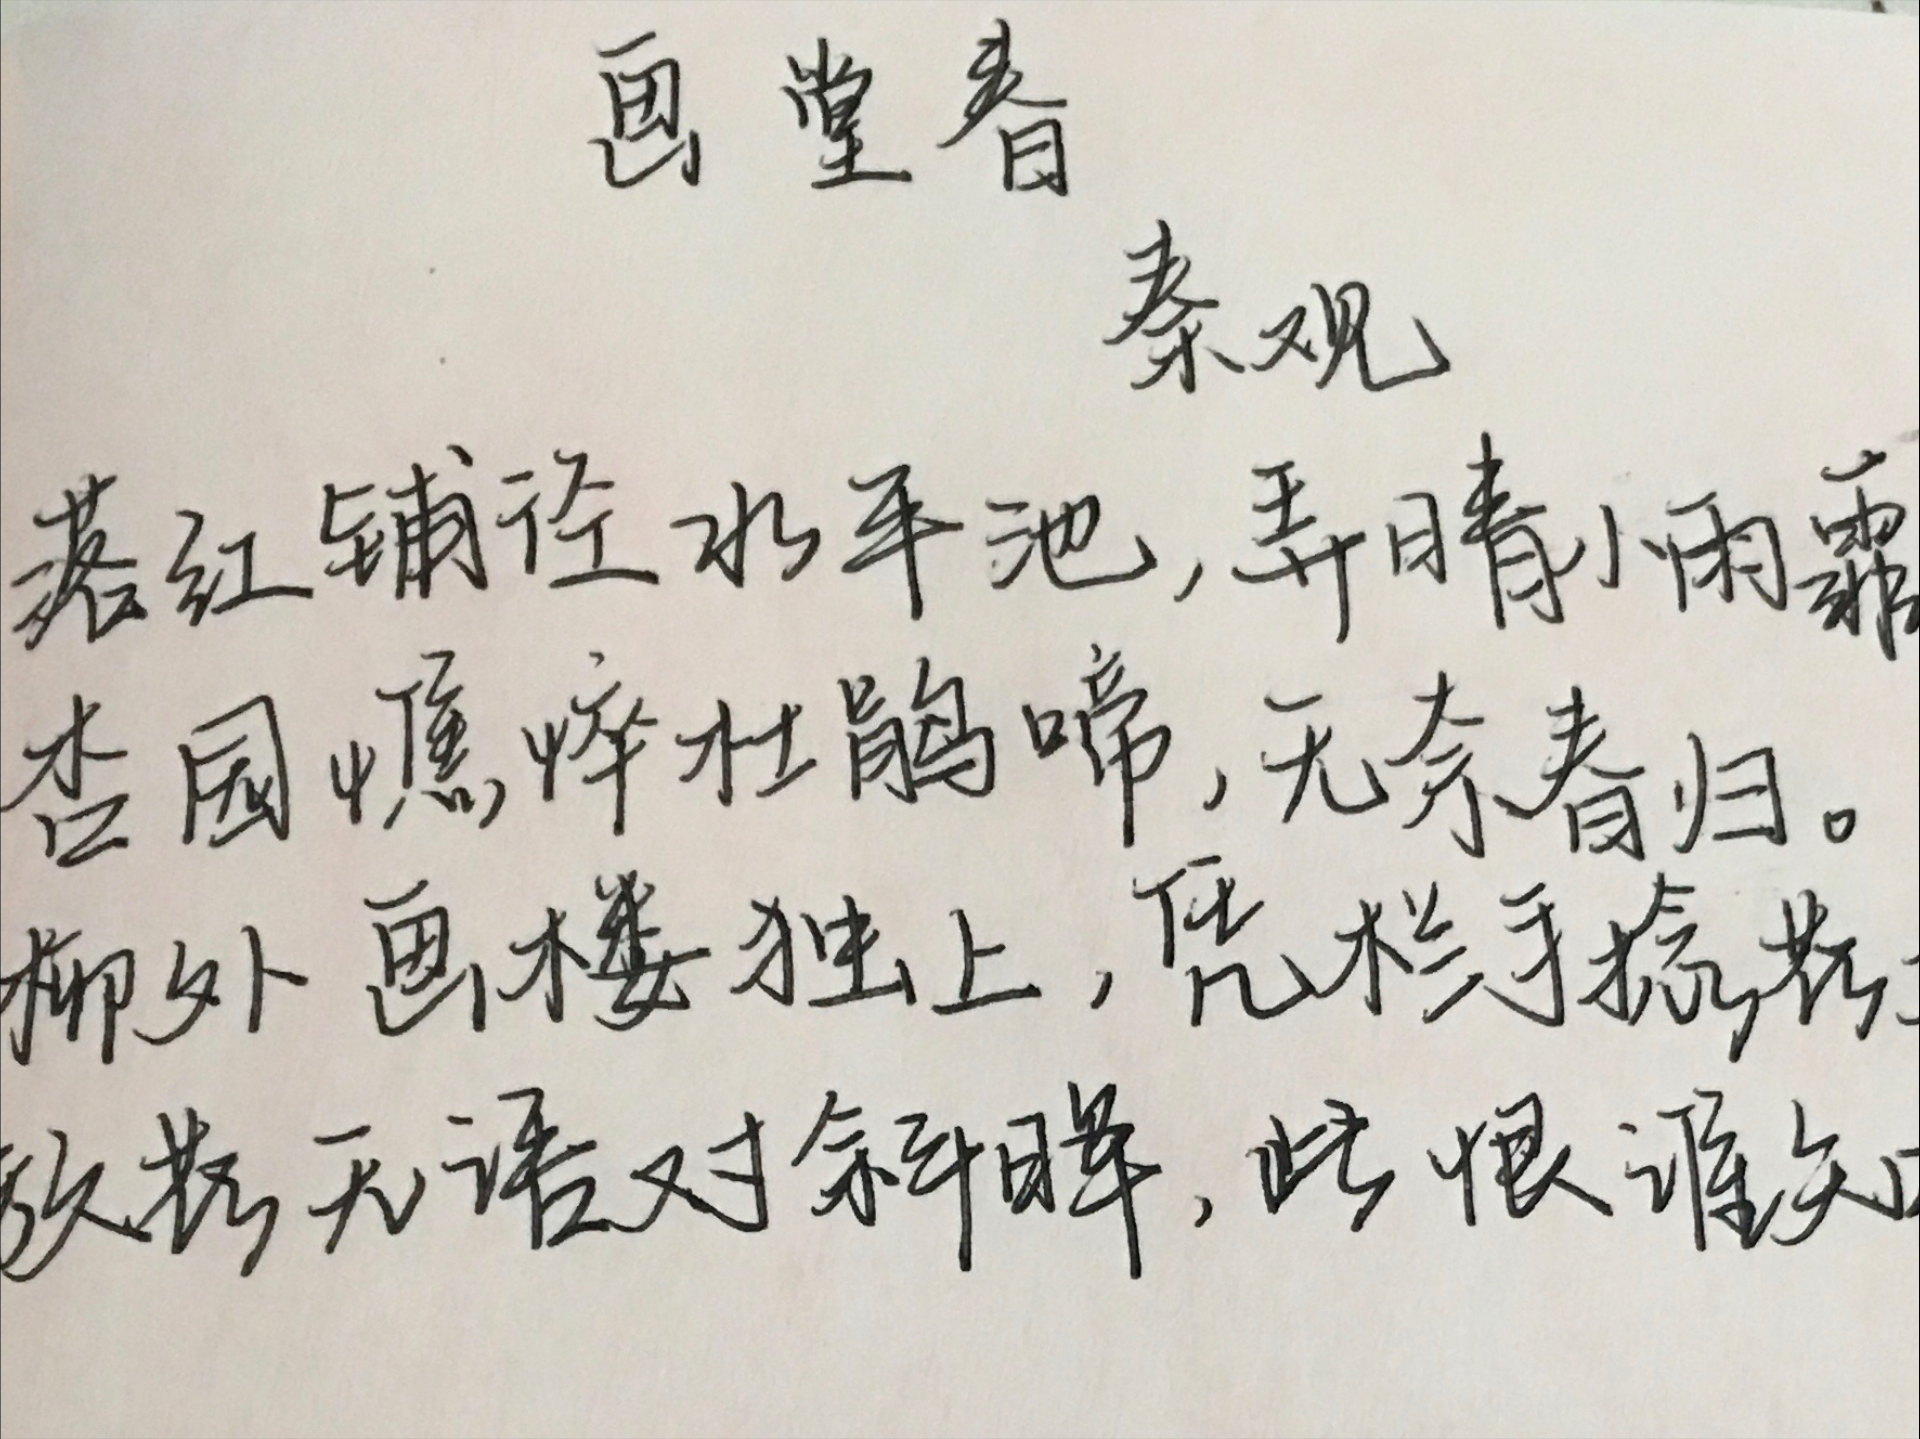 画堂春
秦观
落红铺径水平池,弄晴小雨霏
杏园憔悴杜鹃啼,无奈春归。
柳外画楼独上,凭栏手捻花
放花无语对斜晖,此恨谁知